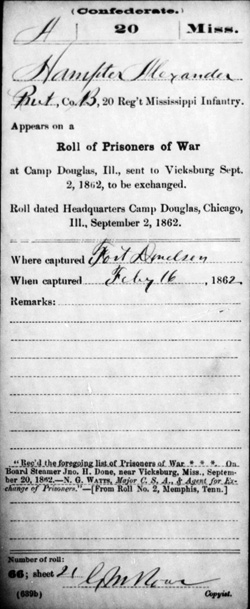 (Confederate.)
H 20 Miss.
Hampter Alexander
Pvt, Co. B, 20 Reg't Mississippi Infantry.
Appears on a
Roll of Prisoners of War
at Camp Douglas, Ill., sent to Vicksburg Sept.
2, 1862, to be exchanged.
Roll dated Headquarters Camp Douglas, Chicago,
Ill., September 2, 1862.
Where captured Fort Donelson
When captured Feby 16, 1862.
Remarks:
"Rec'd the foregoing list of Prisoners of War * * *. On
Board Steamer Jno. H. Done, near Vicksburg, Miss., Septem-
ber 20, 1862.—N. G. WATTS, Major C. S. A., & Agent for Ex-
change of Prisoners."—[From Roll No. 2, Memphis, Tenn.]
Number of roll:
66; sheet 21
(639b) Copyist.